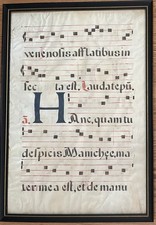 venenosis afflatibus in
fec ta est. Laudate pū.
ā. HAnc, quam tu
despicis Manichęe, ma
ter mea est, et de manu